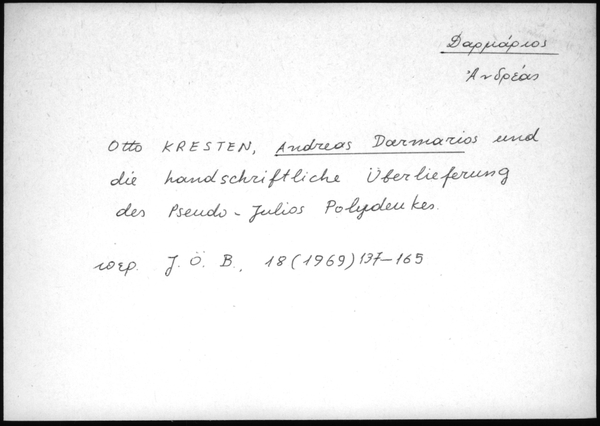 Δαρμάριος
Ἀνδρέας
Otto KRESTEN, Andreas Darmarios und
die handschriftliche Überlieferung
des Pseudo-Julios Polydeukes.
περ. J. Ö. B., 18 (1969) 137-165